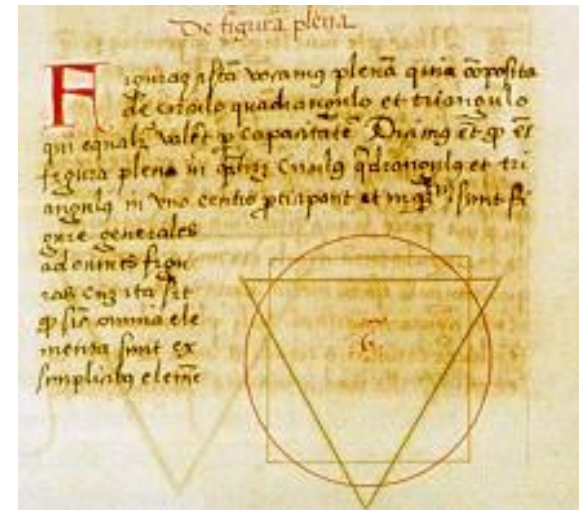 De figura plena
Figuraꝫ istā vocamꝰ plenā quia ꝯposita
de circulo quadrangulo et triangulo
qui equalr̄ valēt ꝑ capacitatē
figura plena in circulꝰ q̄drangulꝰ et tri
angulꝰ in vno centro ꝑticipant et sunt fi
gure generales
ad omnes figu
ras cū ita sit
ꝙ sic omnia ele
menta sunt ex
simplicibꝰ elemē